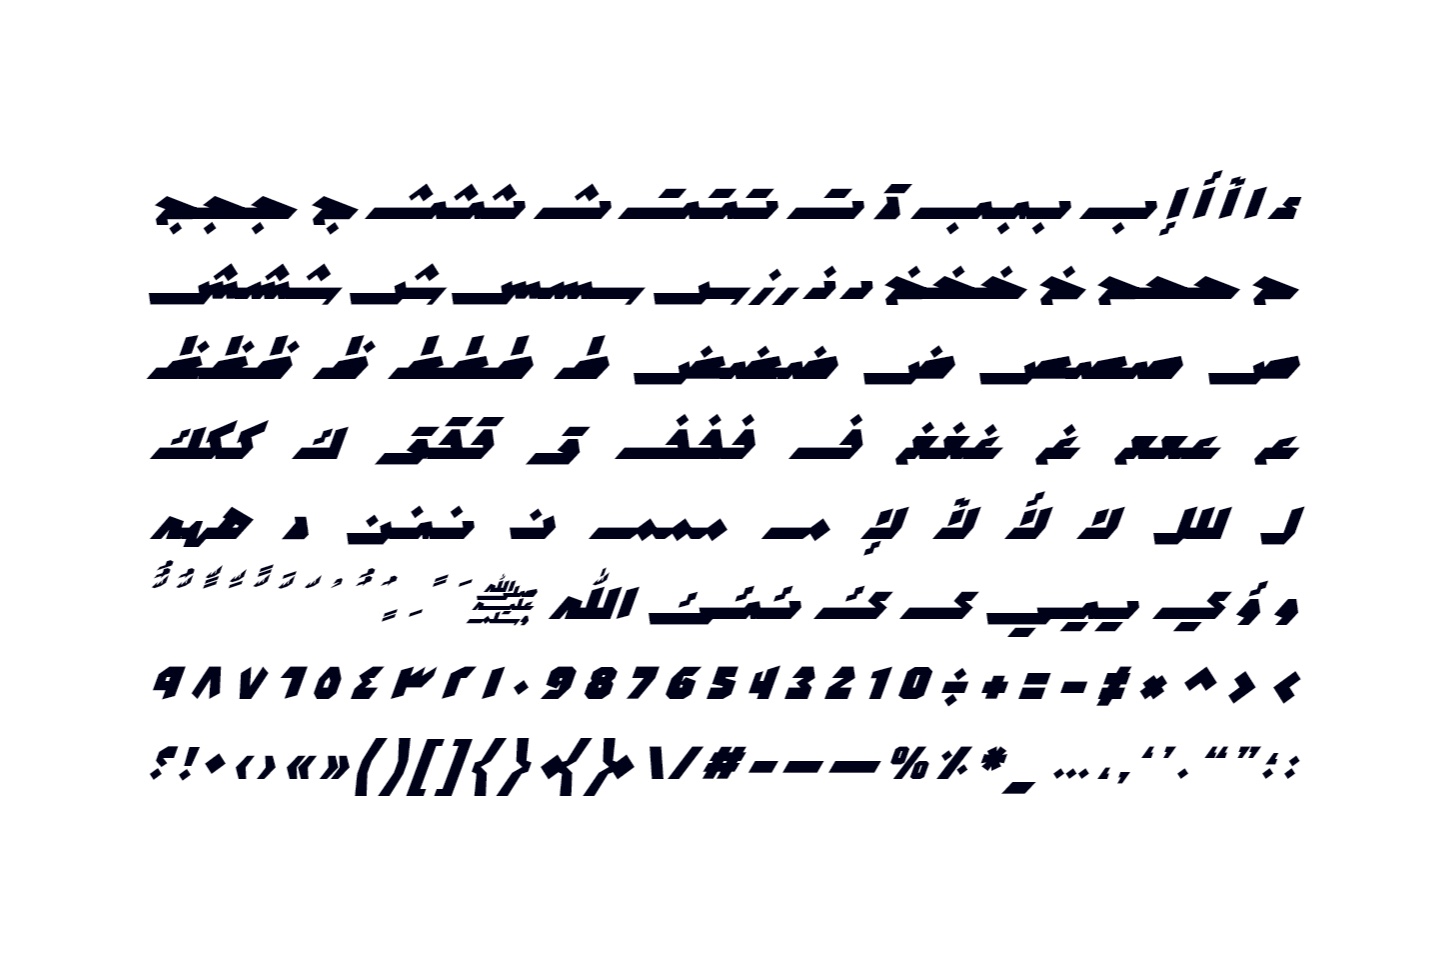 ء ا آ أ إ ب ببب ة ت تتت ث ثثث ج ججج
ح ححح خ خخخ د ذ ر ز س سسس ش ششش
ص صصص ض ضضض ط ططط ظ ظظظ
ع ععع غ غغغ ف ففف ق ققق ك ككك
ل للل لا لأ لآ لإ م ممم ن ننن ه ههه
و ؤ ي ييي ى ئ ئئئ الله ﷺ
< > ^ × ≠ - = + ÷ 0 1 2 3 4 5 6 7 8 9 ٠ ١ ٢ ٣ ٤ ٥ ٦ ٧ ٨ ٩
: ؛ ” “ . ’ ‘ , ، … _ * ٪ % — – - # / \ { } [ ] ( ) » « › ‹ · ! ؟